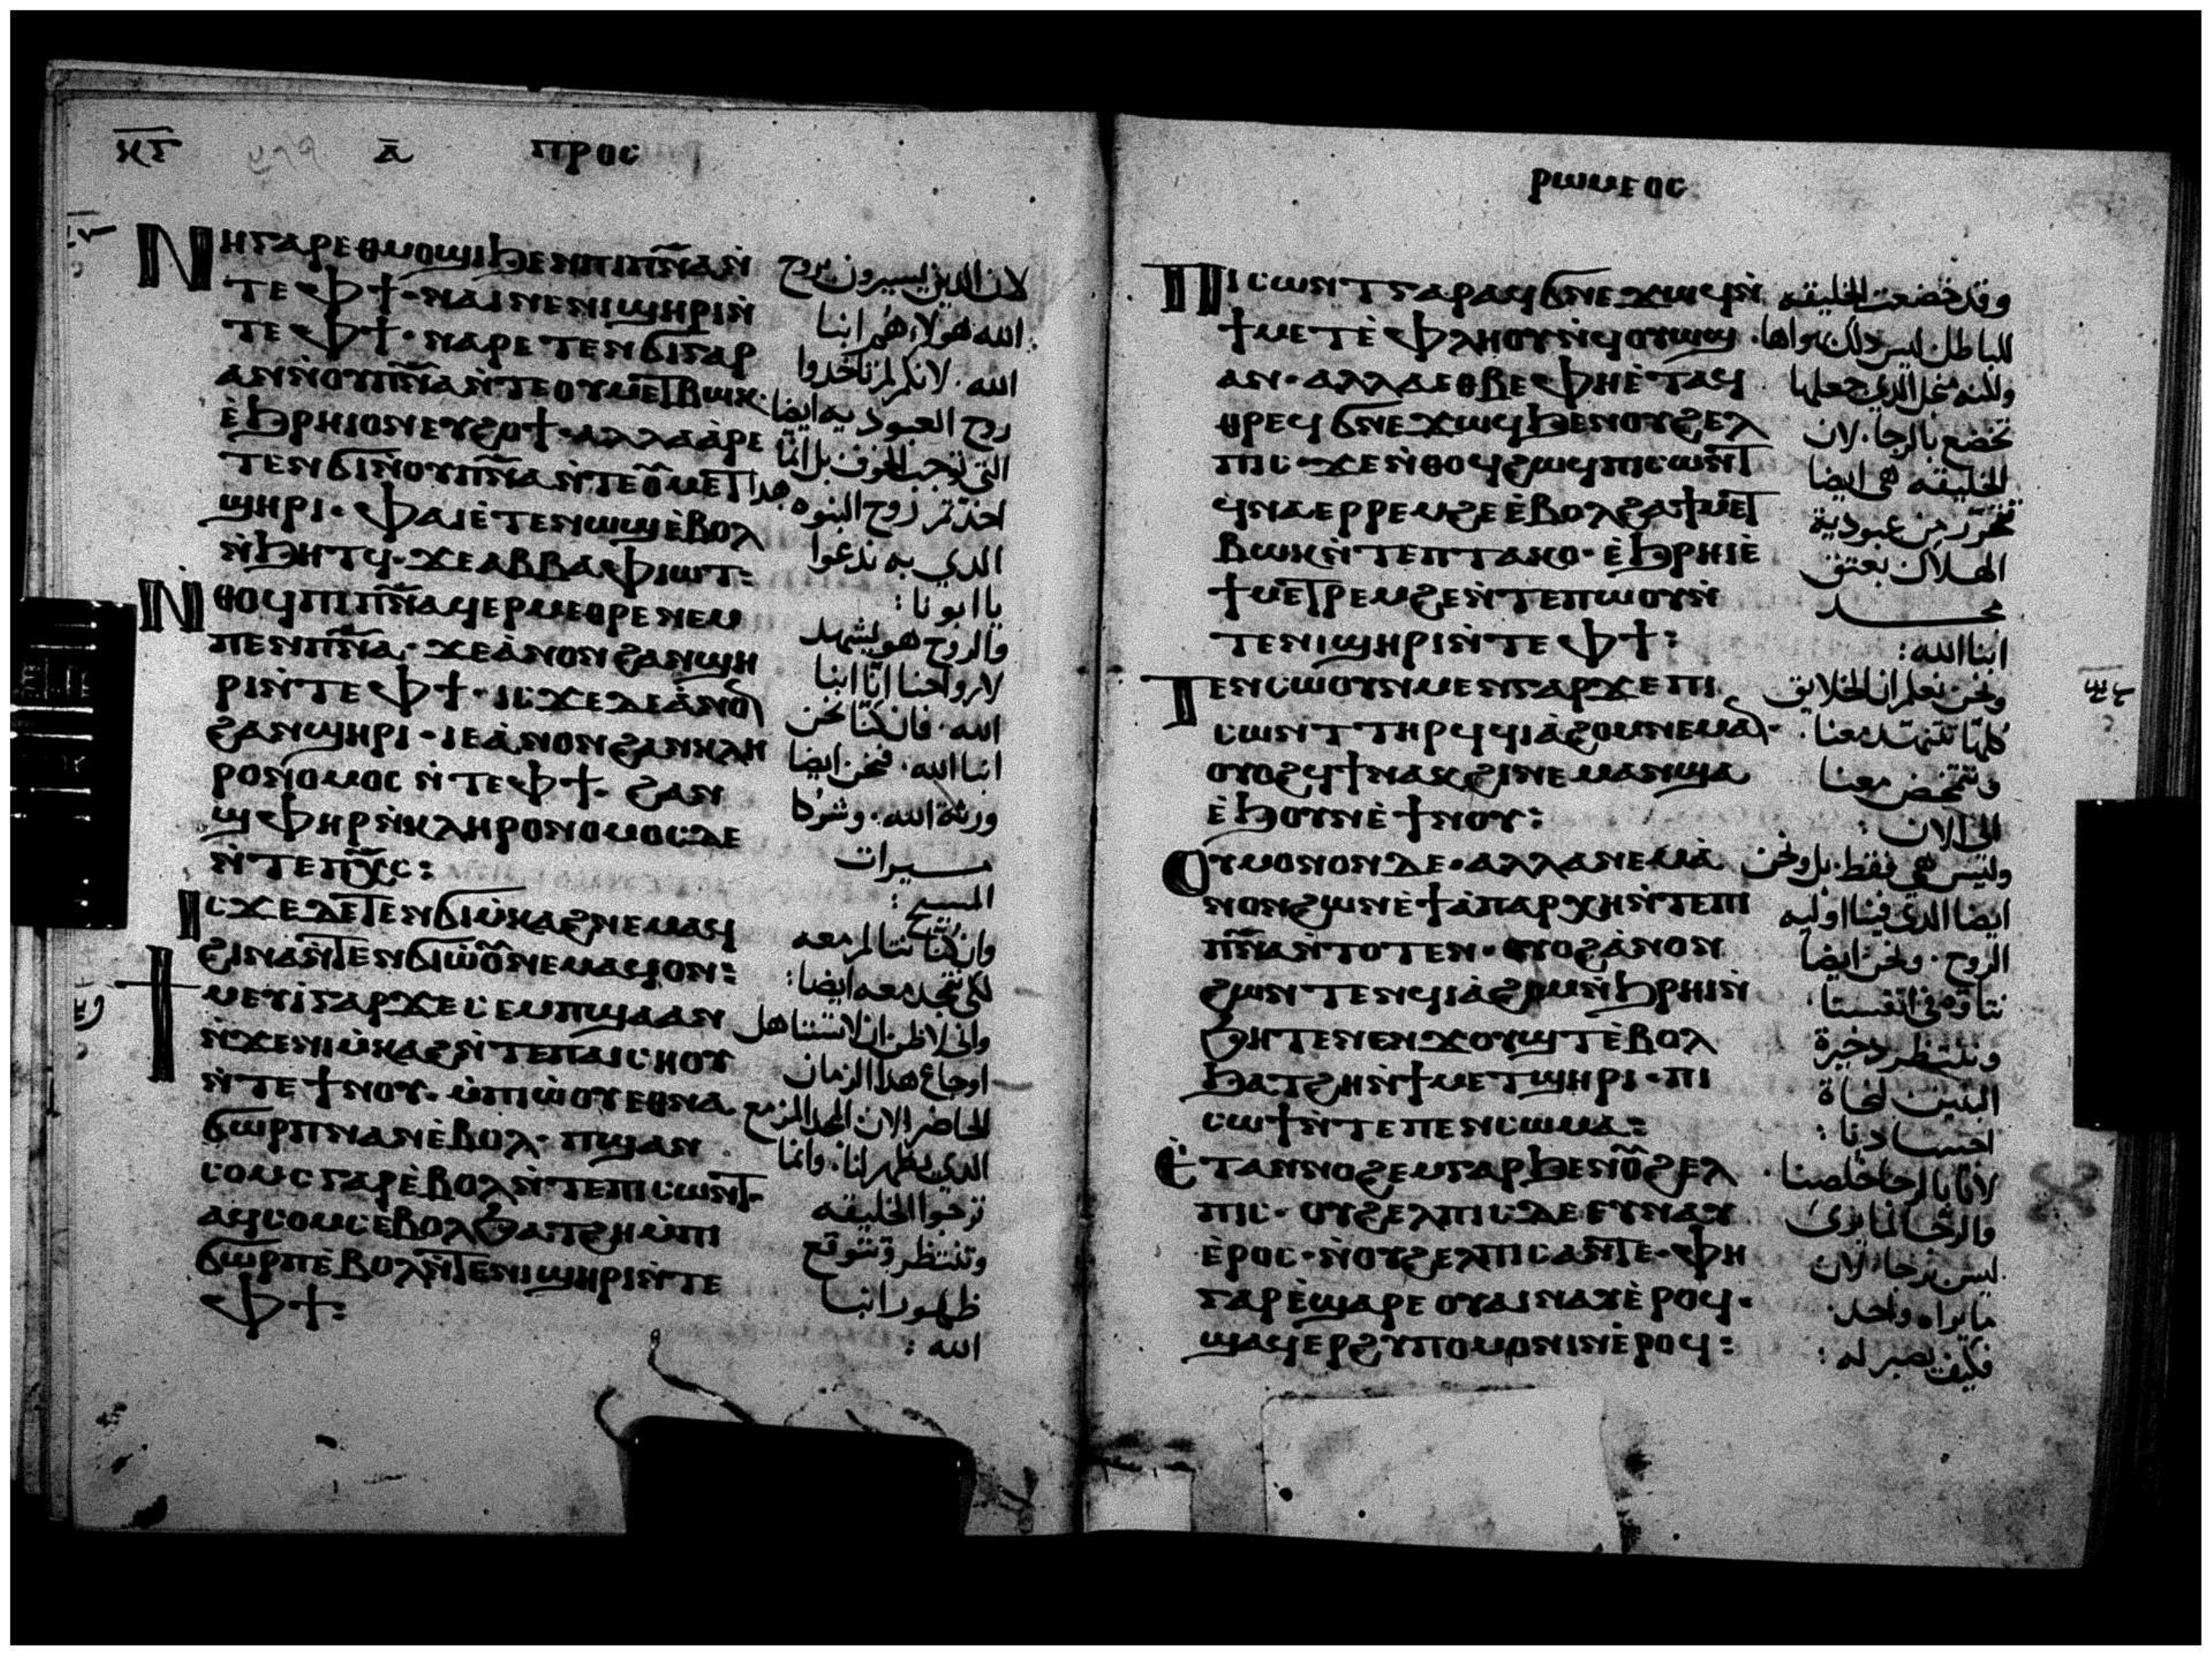 ⲕⲅ ⲁ̅ ⲡⲣⲟⲥ
Ⲛⲏⲅⲁⲣⲉⲑⲙⲟϣⲓϧⲉⲛⲡⲓⲡ̅ⲛ̅ⲁ̅ⲛ̀
ⲧⲉⲫϯ·ⲛⲁⲓⲛⲉⲛⲓϣⲏⲣⲓⲛ̀
ⲧⲉⲫϯ·ⲛⲁⲣⲉⲧⲉⲛϭⲓⲅⲁⲣ
ⲁⲛⲛ̀ⲟⲩⲡ̅ⲛ̅ⲁ̅ⲛ̀ⲧⲉⲟⲩⲙⲉⲧⲃⲱⲕ·
ⲉ̀ϧⲣⲏⲓⲟⲛⲉⲩϩⲟϯ·ⲁⲗⲗⲁⲁ̀ⲣⲉ
ⲧⲉⲛϭⲓⲛ̀ⲟⲩⲡ̅ⲛ̅ⲁ̅ⲛ̀ⲧⲉⲟ̅ⲩⲙⲉⲧ
ϣⲏⲣⲓ·ⲫⲁⲓⲉ̀ⲧⲉⲛⲱϣⲉ̀ⲃⲟⲗ
ⲛ̀ϧⲏⲧϥ·ϫⲉⲁⲃⲃⲁⲫⲓⲱⲧ:
Ⲛ̀ⲑⲟϥⲡⲓⲡ̅ⲛ̅ⲁ̅ϥⲉⲣⲙⲉⲑⲣⲉⲛⲉⲙ
ⲡⲉⲛⲡ̅ⲛ̅ⲁ̅·ϫⲉⲁ̀ⲛⲟⲛϩⲁⲛϣⲏ
ⲣⲓⲛ̀ⲧⲉⲫϯ·ⲓⲥϫⲉⲇⲉⲁ̀ⲛⲟⲛ
ϩⲁⲛϣⲏⲣⲓ·ⲓⲉⲁ̀ⲛⲟⲛϩⲁⲛⲕⲗⲏ
ⲣⲟⲛⲟⲙⲟⲥⲛ̀ⲧⲉⲫϯ·ϩⲁⲛ
ϣⲫⲏⲣⲛ̀ⲕⲗⲏⲣⲟⲛⲟⲙⲟⲥⲇⲉ
ⲛ̀ⲧⲉⲡⲭ̅ⲥ̅:
Ⲓⲥϫⲉⲇⲉⲧⲉⲛϭⲓⲙ̀ⲕⲁϩⲛⲉⲙⲁϥ
ϩⲓⲛⲁⲛ̀ⲧⲉⲛϭⲓⲱ̀ⲟ̅ⲩⲛⲉⲙⲁϥⲟⲛ:
Ϯⲙⲉⲩⲓ̀ⲅⲁⲣϫⲉⲥⲉⲙⲡϣⲁⲁⲛ
ⲛ̀ϫⲉⲛⲓⲙ̀ⲕⲁϩⲛ̀ⲧⲉⲡⲁⲓⲥⲏⲟⲩ
ⲛ̀ⲧⲉϯⲛⲟⲩ·ⲙ̀ⲡⲓⲱ̀ⲟⲩⲉⲑⲛⲁ
ϭⲱⲣⲡⲛⲁⲛⲉ̀ⲃⲟⲗ·ⲡϣⲁⲛ
ⲥⲟⲙⲥⲅⲁⲣⲉ̀ⲃⲟⲗⲛ̀ⲧⲉⲡⲓⲥⲱⲛⲧ·
ⲁϥⲥⲟⲙⲥⲉ̀ⲃⲟⲗϧⲁⲧϩⲏⲙ̀ⲡⲓ
ϭⲱⲣⲡⲉ̀ⲃⲟⲗⲛ̀ⲧⲉⲛⲓϣⲏⲣⲓⲛ̀ⲧⲉ
ⲫϯ:
لان الذين يسيرون بروح
الله هولاء هم ابنا
الله. لانكم لم تاخدوا
روح العبوديه ايضا
التي توجب الخوف بل انما
اخذتم روح البنوه هدا
الدي به ندعوا
يا ابونا:
والروح هو يشهد
لارواحنا انا ابنا
الله. فان كنا نحن
ابنا الله. فنحن ايضا
ورثة الله. وشركا
ميرات
المسيح:
وان كنا نتالم معه
لكي نتمجد معه ايضا:
واني لاظن ان لا تستاهل
اوجاع هدا الزمان
الحاضر الان المجد المزمع
الدي يظهر لنا. وانما
ترجوا الخليقه
وتنتظر وتتوقع
ظهور ابنا
الله:
ⲣⲱⲙⲉⲟⲥ
Ⲡⲓⲥⲱⲛⲧⲅⲁⲣⲁϥϭⲛⲉϫⲱϥⲛ̀
ϯⲙⲉⲧⲉ̀ⲫⲗⲏⲟⲩⲛ̀ϥⲟⲩⲱϣ
ⲁⲛ·ⲁⲗⲗⲁⲉⲑⲃⲉⲫⲏⲉ̀ⲧⲁϥ
ⲑⲣⲉϥϭⲛⲉϫⲱϥϧⲉⲛⲟⲩϩⲉⲗ
ⲡⲓⲥ·ϫⲉⲛ̀ⲑⲟϥϩⲱϥⲡⲓⲥⲱⲛⲧ
ϥⲛⲁⲉⲣⲣⲉⲙϩⲉⲉ̀ⲃⲟⲗϩⲁϯⲙⲉⲧ
ⲃⲱⲕⲛ̀ⲧⲉⲡⲧⲁⲕⲟ·ⲉ̀ϧⲣⲏⲓⲉ̀
ϯⲙⲉⲧⲣⲉⲙϩⲉⲛ̀ⲧⲉⲡⲱⲟⲩⲛ̀
ⲧⲉⲛⲓϣⲏⲣⲓⲛ̀ⲧⲉⲫϯ:
Ⲧⲉⲛⲥⲱⲟⲩⲛⲙⲉⲛⲅⲁⲣϫⲉⲡⲓ
ⲥⲱⲛⲧⲧⲏⲣϥϥⲓⲁ̀ϩⲟⲙⲛⲉⲙⲁⲛ·
ⲟⲩⲟϩϥϯⲛⲁⲕϩⲓⲛⲉⲙⲁⲛϣⲁ
ⲉ̀ϧⲟⲩⲛⲉ̀ϯⲛⲟⲩ:
Ⲟⲩⲙⲟⲛⲟⲛⲇⲉ·ⲁⲗⲗⲁⲛⲉⲙⲁ̀
ⲛⲟⲛϩⲱⲛⲉ̀ϯⲁ̀ⲡⲁⲣⲭⲏⲛ̀ⲧⲉⲡⲓ
ⲡ̅ⲛ̅ⲁ̅ⲛ̀ⲧⲟⲧⲉⲛ·ⲟⲩⲟϩⲁ̀ⲛⲟⲛ
ϩⲱⲛⲧⲉⲛϥⲓⲁ̀ϩⲟⲙⲛ̀ϧⲣⲏⲓⲛ̀
ϧⲏⲧⲉⲛⲉⲛϫⲟⲩϣⲧⲉ̀ⲃⲟⲗ
ϧⲁⲧϩⲏⲛ̀ϯⲙⲉⲧϣⲏⲣⲓ·ⲡⲓ
ⲥⲱϯⲛ̀ⲧⲉⲡⲉⲛⲥⲱⲙⲁ:
Ⲉ̀ⲧⲁⲛⲛⲟϩⲉⲙⲅⲁⲣϧⲉⲛⲟ̅ⲩϩⲉⲗ
ⲡⲓⲥ·ⲟⲩϩⲉⲗⲡⲓⲥⲇⲉⲉⲩⲛⲁⲩ
ⲉ̀ⲣⲟⲥ·ⲛ̀ⲟⲩϩⲉⲗⲡⲓⲥⲁⲛⲧⲉ·ⲫⲏ
ⲅⲁⲣⲉ̀ϣⲁⲣⲉⲟⲩⲁⲓⲛⲁⲩⲉ̀ⲣⲟϥ·
ϣⲁϥⲉⲣϩⲩⲡⲟⲙⲟⲛⲓⲛⲉ̀ⲣⲟϥ:
وقد خضعت الخليقه
للباطل ليس دلك بهواها.
ولكنه من اجل الدي جعلها
تخضع بالرجا. لان
الخليقه هي ايضا
تتحرر من عبودية
الهلاك بعتق
مجد
ابنا الله:
ونحن نعلم ان الخلايق
كلها تتنهد معنا.
وتتمخض معنا
الي الان:
وليس هي فقط. بل ونحن
ايضا الدي فينا اوليه
الروح. ونحن ايضا
نتاوه في انفسنا
وننتظر دخيرة
البنين لنجاة
اجسادنا:
لانا بالرجا خلصنا
والرجا لما يري
ليس برجا. لان
ما يراه واحد.
فكيف يصبر له: